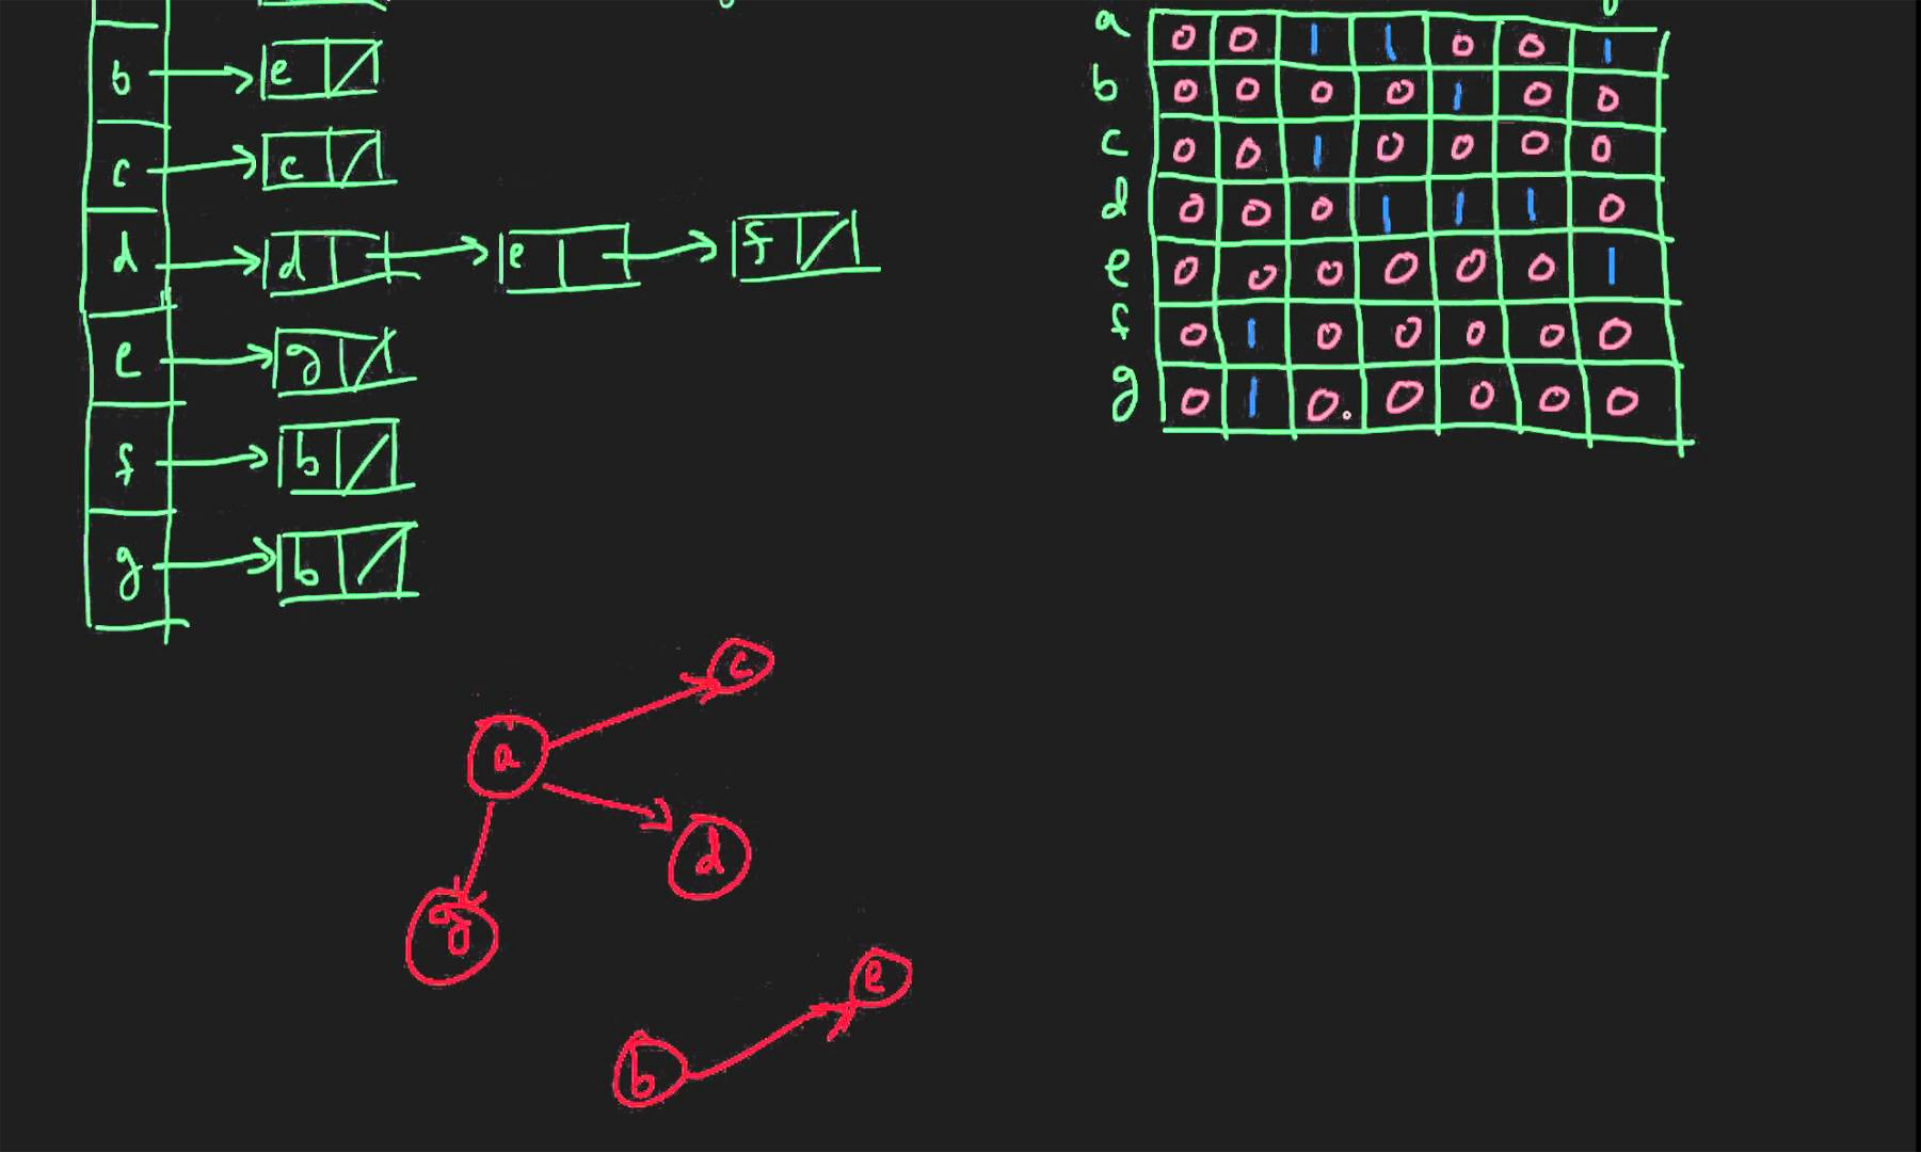 b e
c c
d d e f
e g
f b
g b
a 0 0 1 1 0 0 1
b 0 0 0 0 1 0 0
c 0 0 1 0 0 0 0
d 0 0 0 1 1 1 0
e 0 0 0 0 0 0 1
f 0 1 0 0 0 0 0
g 0 1 0 0 0 0 0
c
a
d
g
e
b